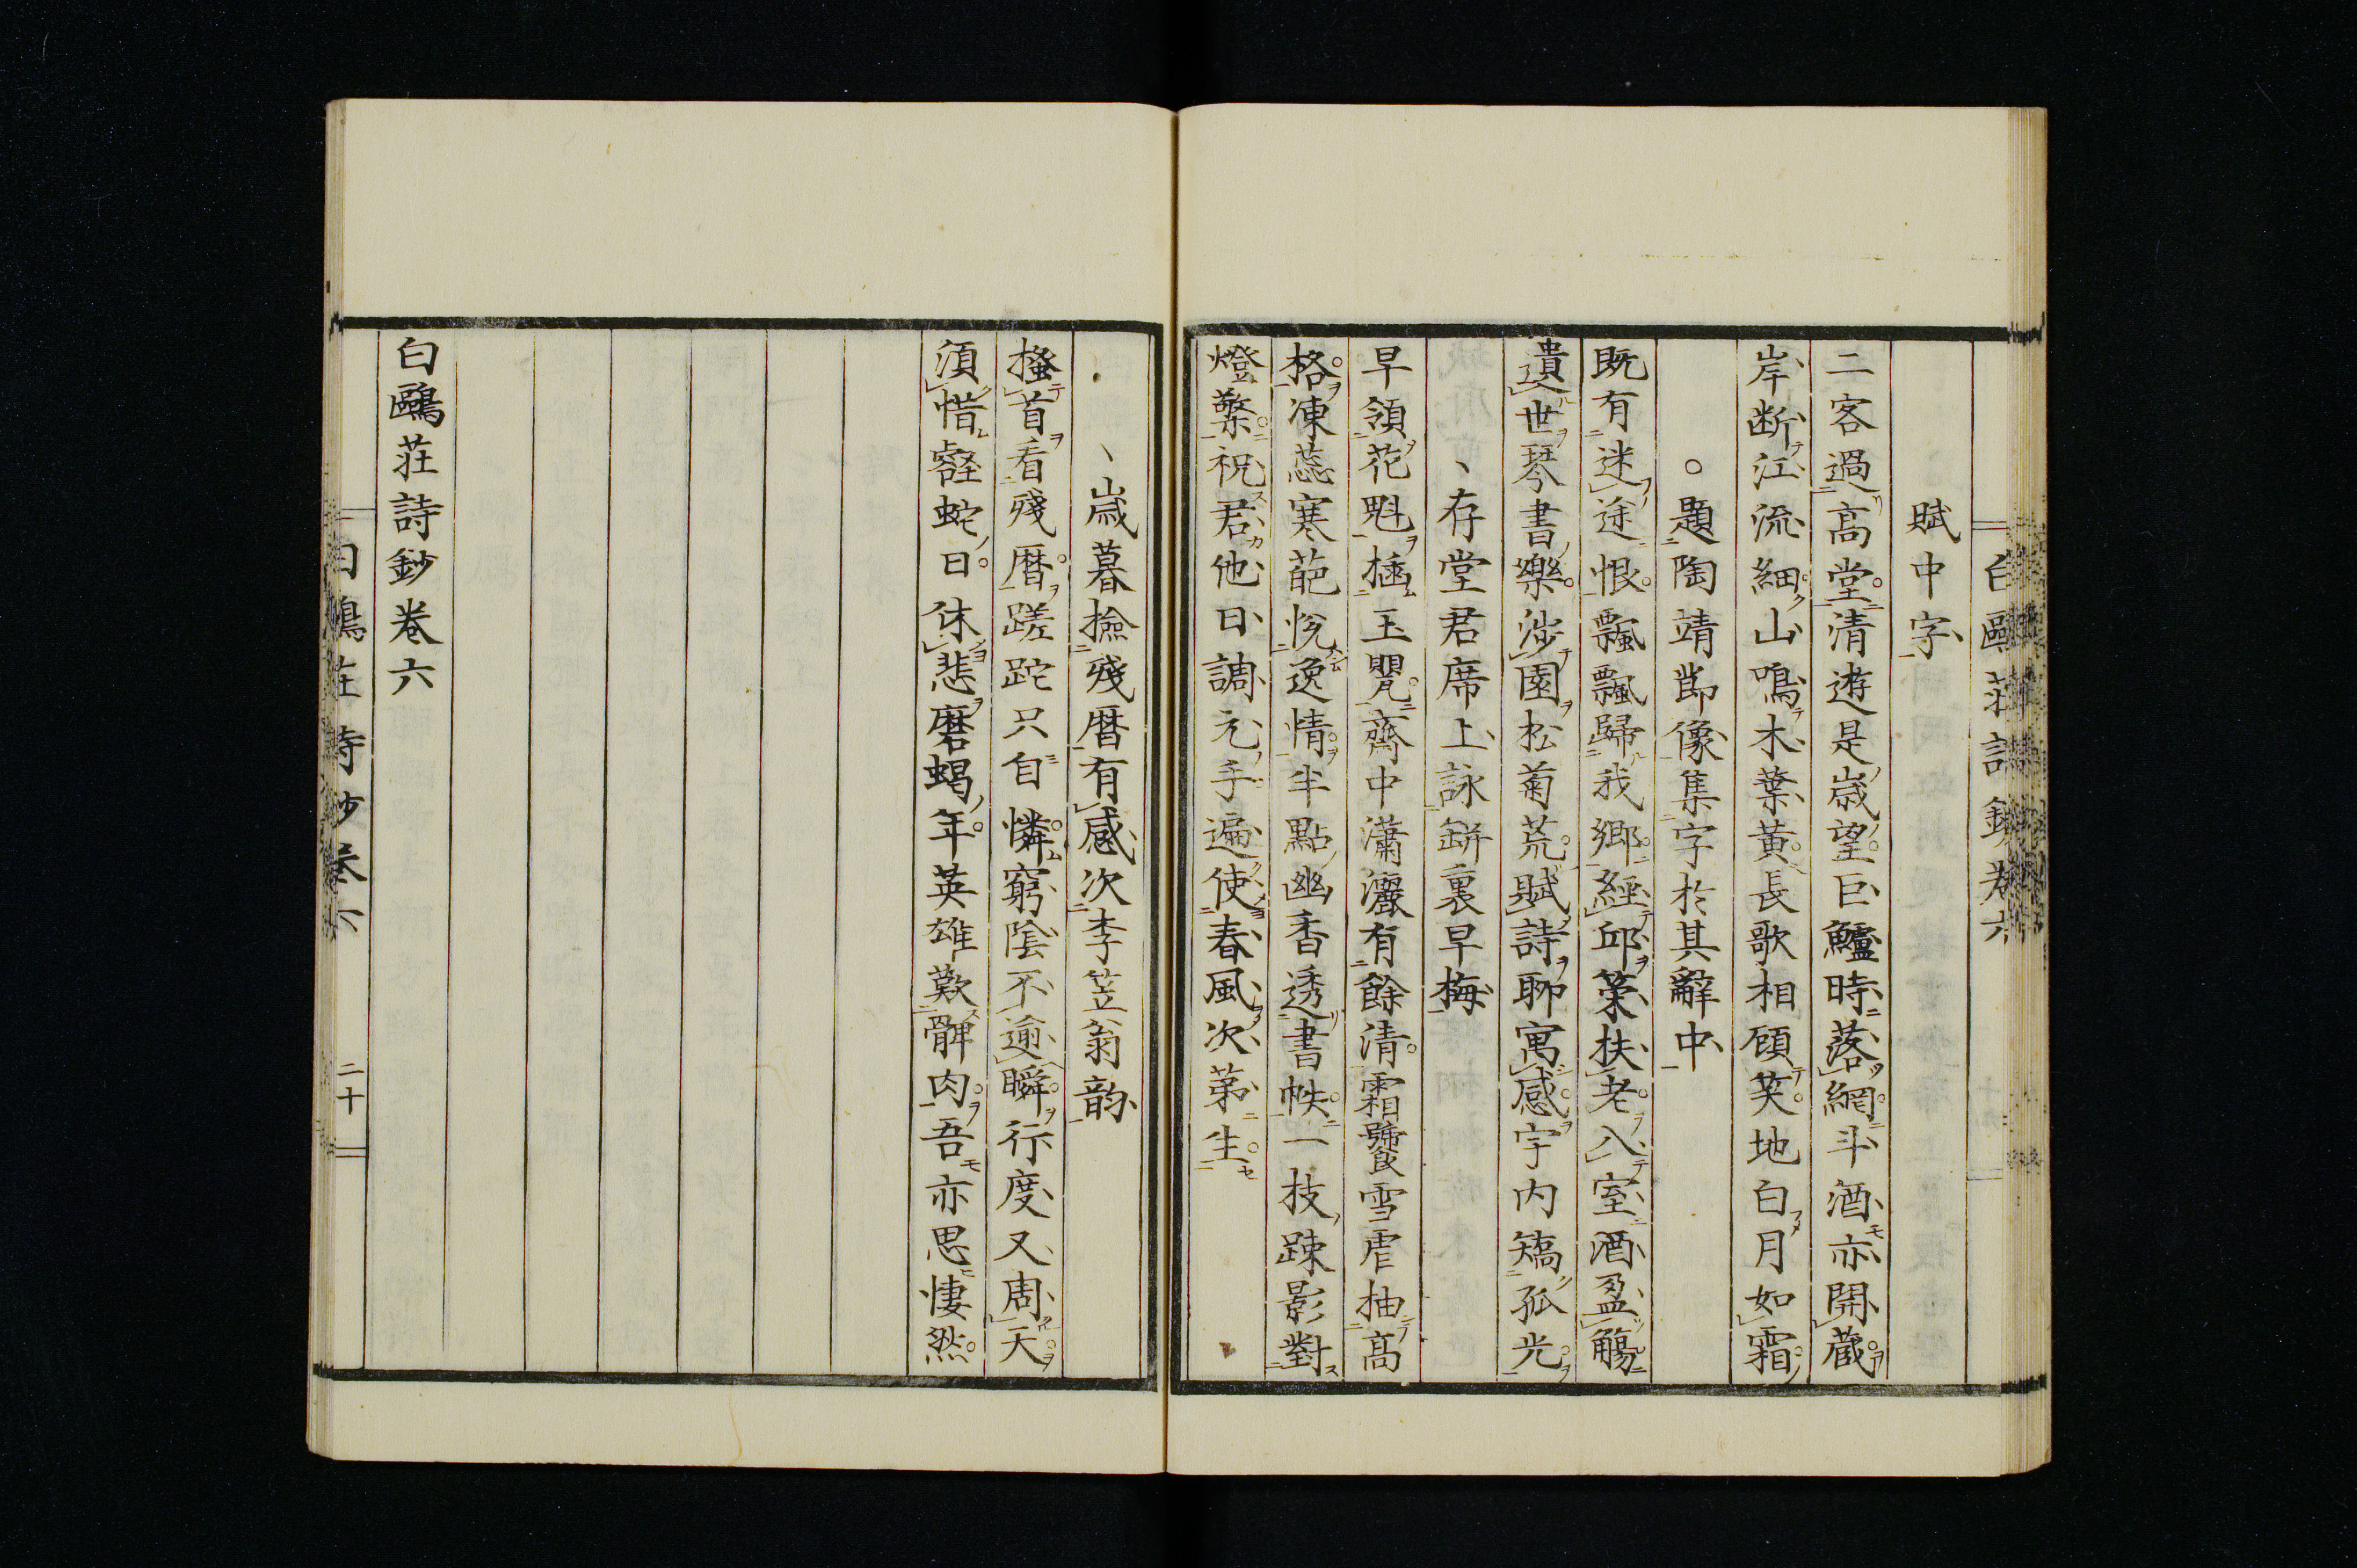 白鷗莊詩鈔卷六
賦中字
二客過高堂清遊是歳望巨鱸時落網斗酒亦開蔵
岸断江流細山鳴木葉黄長歌相顧笑地白月如霜
○題陶靖節像集字於其辭中
既有迷途恨飄飄歸我鄉經邱策扶老入室酒盈觴
遺世琴書樂渉園松菊荒賦詩聊寓感宇内矯孤光
、存堂君席上詠缾裏早梅
早領花魁插玉甖齋中瀟灑有餘清霜饕雪虐抽高
格凍蕊寒葩悅逸情半點幽香透書帙一枝疎影對
燈檠祝君他日調元手遍使春風次第生
、歳暮撿殘暦有感次李笠翁韵
搔首看殘暦蹉跎只自憐窮陰不逾瞬行度又周天
須惜壑蛇日休悲磨蝎年英雄歎髀肉吾亦思悽然
白鷗莊詩鈔卷六
白鷗莊詩鈔卷六 二十